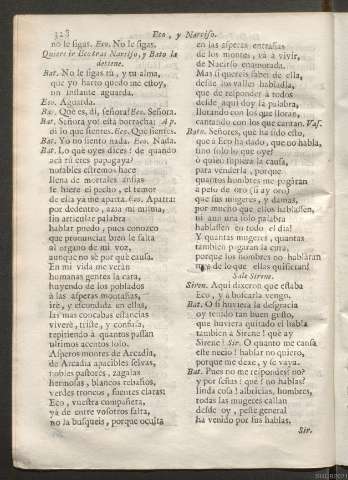 328 Eco, y Narciso.
no le sigas. Eco. No le sigas.
Quiere ir Eco tras Narciso, y Bato la
detiene.
Bat. No le sigas tú, y tu alma,
que yo harto quedo me estoy,
un instante aguarda.
Eco. Aguarda.
Bat. Qué es di, señora? Eco. Señora.
Bat. Señora yo! està borracha! Ap.
di lo que sientes. Eco. Que sientes.
Bat. Yo no siento nada. Eco. Nada.
Bat. Lo que oyes dices! de quando
acà tú eres papagaya?
notables estremos hace
llena de mortales ansias
se hiere el pecho, el temor
de ella ya me aparta. Eco. Aparta:
por dedentro, azia mi misma,
sin articular palabra
hablar puedo, pues conozco
que pronunciar bien le falta
al organo de mi voz,
aunque no sè por què causa.
En mi vida me veràn
humanas gentes la cara,
huyendo de los poblados
à las asperas montañas,
irè, y escondida en ellas,
las mas concabas estancias
vivirè, triste, y confusa,
repitiendo à quantos passan
ultimos acentos solo.
Asperos montes de Arcadia,
de Arcadia apacibles selvas,
nobles pastores, zagalas
hermosas, blancos rebaños,
verdes troncos, fuentes claras:
Eco, vuestra compañera,
yà de entre vosotros falta,
no la busqueis, porque oculta
en las asperas entrañas
de los montes, và à vivir,
de Narciso enamorada.
Mas si quereis saber de ella,
desde los valles habladla,
que de responder à todos
desde aqui doy la palabra,
llorando con los que lloran,
cantando con los que cantan. Vas.
Bato. Señores, què ha sido esto,
que à Eco ha dado, que no habla,
sino solo lo que oye!
ò quien supiera la causa,
para venderla, porque
quantos hombres me pagàran
à peso de oro (si ay oro)
que sus mugeres, y damas,
por mucho ellos hablassen,
ni aun una solo palabra
hablassen en todo el dia!
Y quantas mugeres, quantas
tambien pagàran la cura,
porque los hombres no hablàran
mas de lo que ellas quisieran!
Sale Sirene.
Siren. Aqui dixeron que estaba
Eco, y à buscarla vengo.
Bat. O si huviera la desgracia
oy tenido tan buen gusto,
que huviera quitado el habla
tambien à Sirene! què ay
Sirene! Sir. O quanto me cansa
este necio! hablar no quiero,
porque me dexe, y se vaya.
Bat. Pues no me respondes? no?
y por señas! què! no hablas?
linda cosa! albricias, hombres,
todas las mugeres callan
desde oy, peste general
ha venido por sus hablas.
Sir.